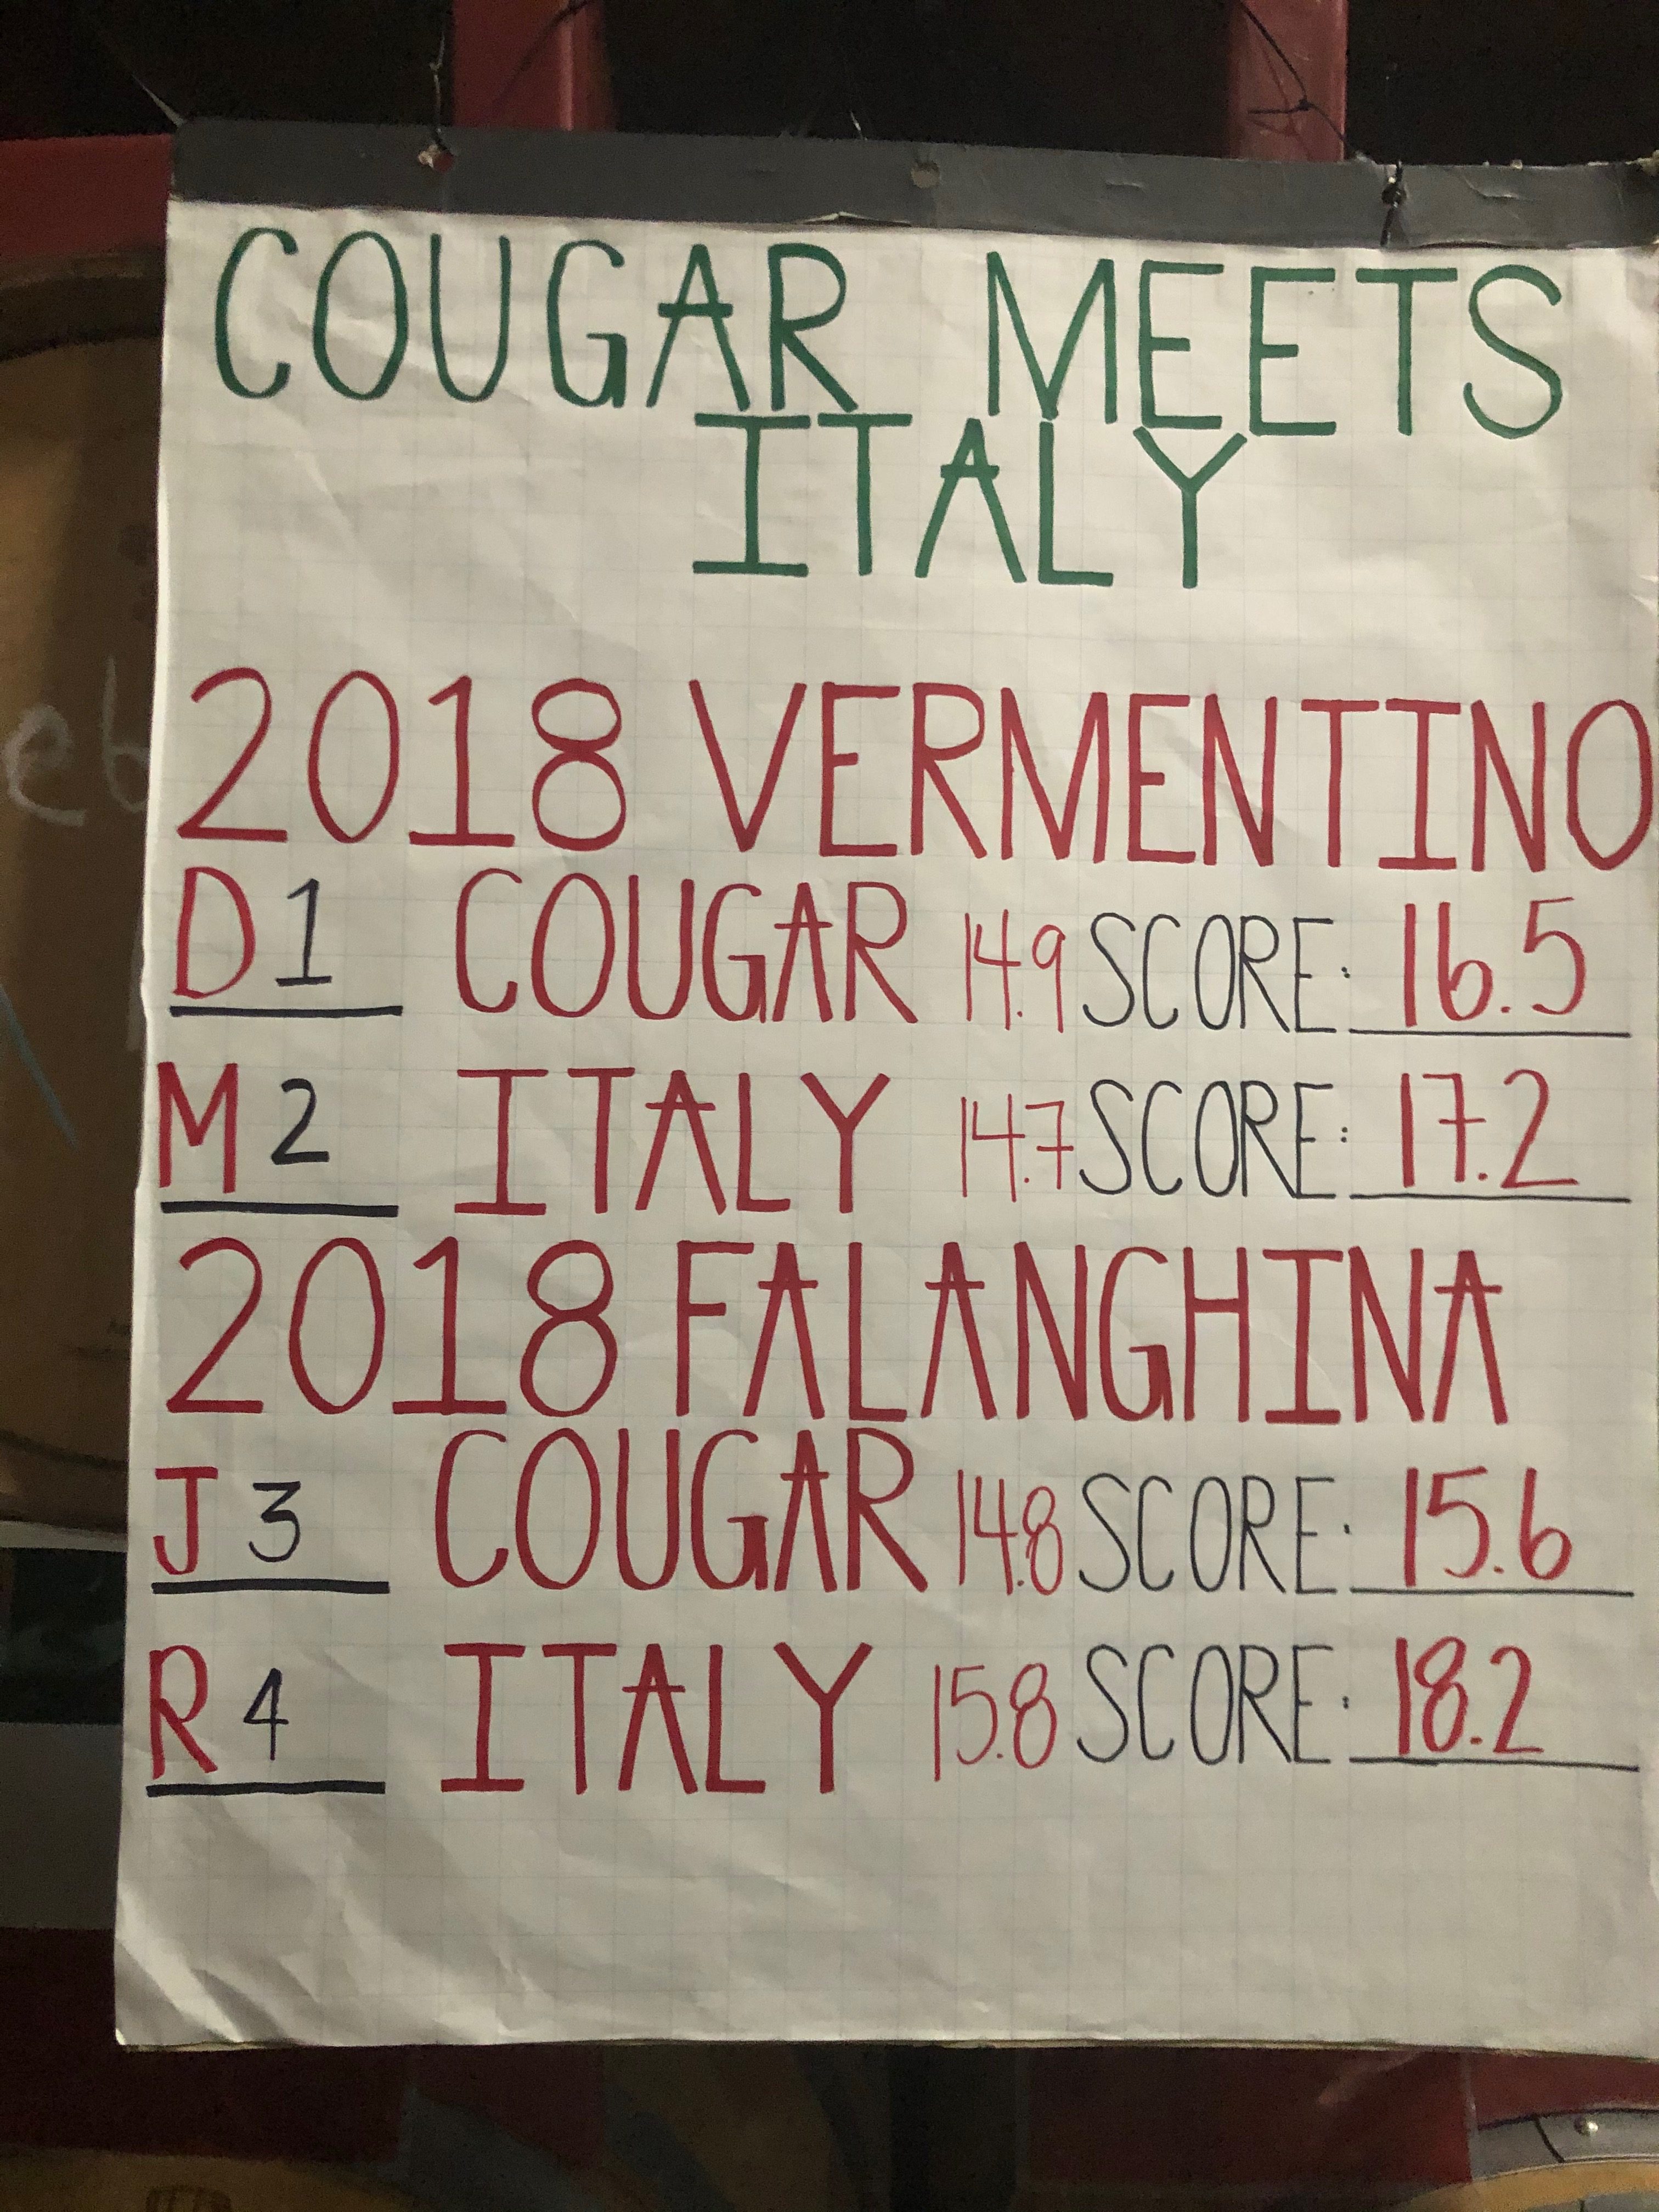 COUGAR MEETS
ITALY
2018 VERMENTINO
D 1 COUGAR 14.9 SCORE: 16.5
M 2 ITALY 14.7 SCORE: 17.2
2018 FALANGHINA
J 3 COUGAR 14.8 SCORE: 15.6
R 4 ITALY 15.8 SCORE: 18.2